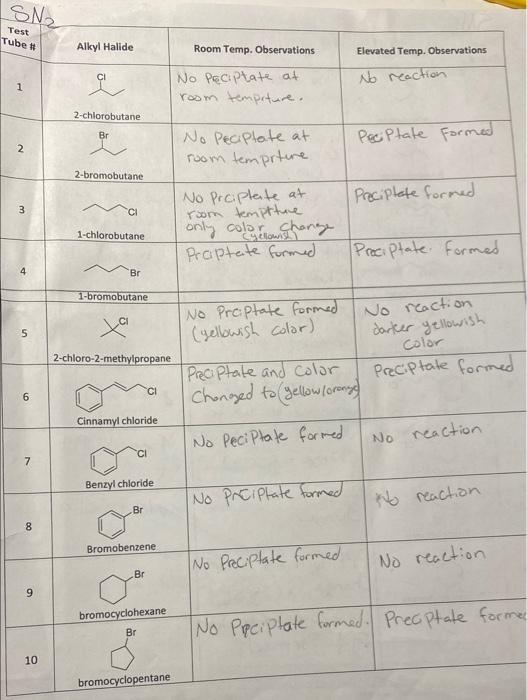 SN2
Test Tube #
Alkyl Halide
Room Temp. Observations
Elevated Temp. Observations
1
Cl
2-chlorobutane
No Peciptate at
room tempriture.
No reaction
2
Br
2-bromobutane
No Peciptate at
room temprture
Peciptate Formed
3
Cl
1-chlorobutane
No Prciptate at
room tempttue
only color change
(yellowish)
Preciptate formed
4
Br
1-bromobutane
Prciptate formed
Preciptate formed
5
Cl
2-chloro-2-methylpropane
No Prciptate formed
(yellowish color)
No reaction
darker yellowish
color
6
Cl
Cinnamyl chloride
Preciptate and color
Changed to (yellow/orange)
Preciptate formed
7
Cl
Benzyl chloride
No Peciptate formed
No reaction
8
Br
Bromobenzene
No Prciptate formed
No reaction
9
Br
bromocyclohexane
No Preciptate formed
No reaction
10
Br
bromocyclopentane
No Preciptate formed.
Preciptate formed